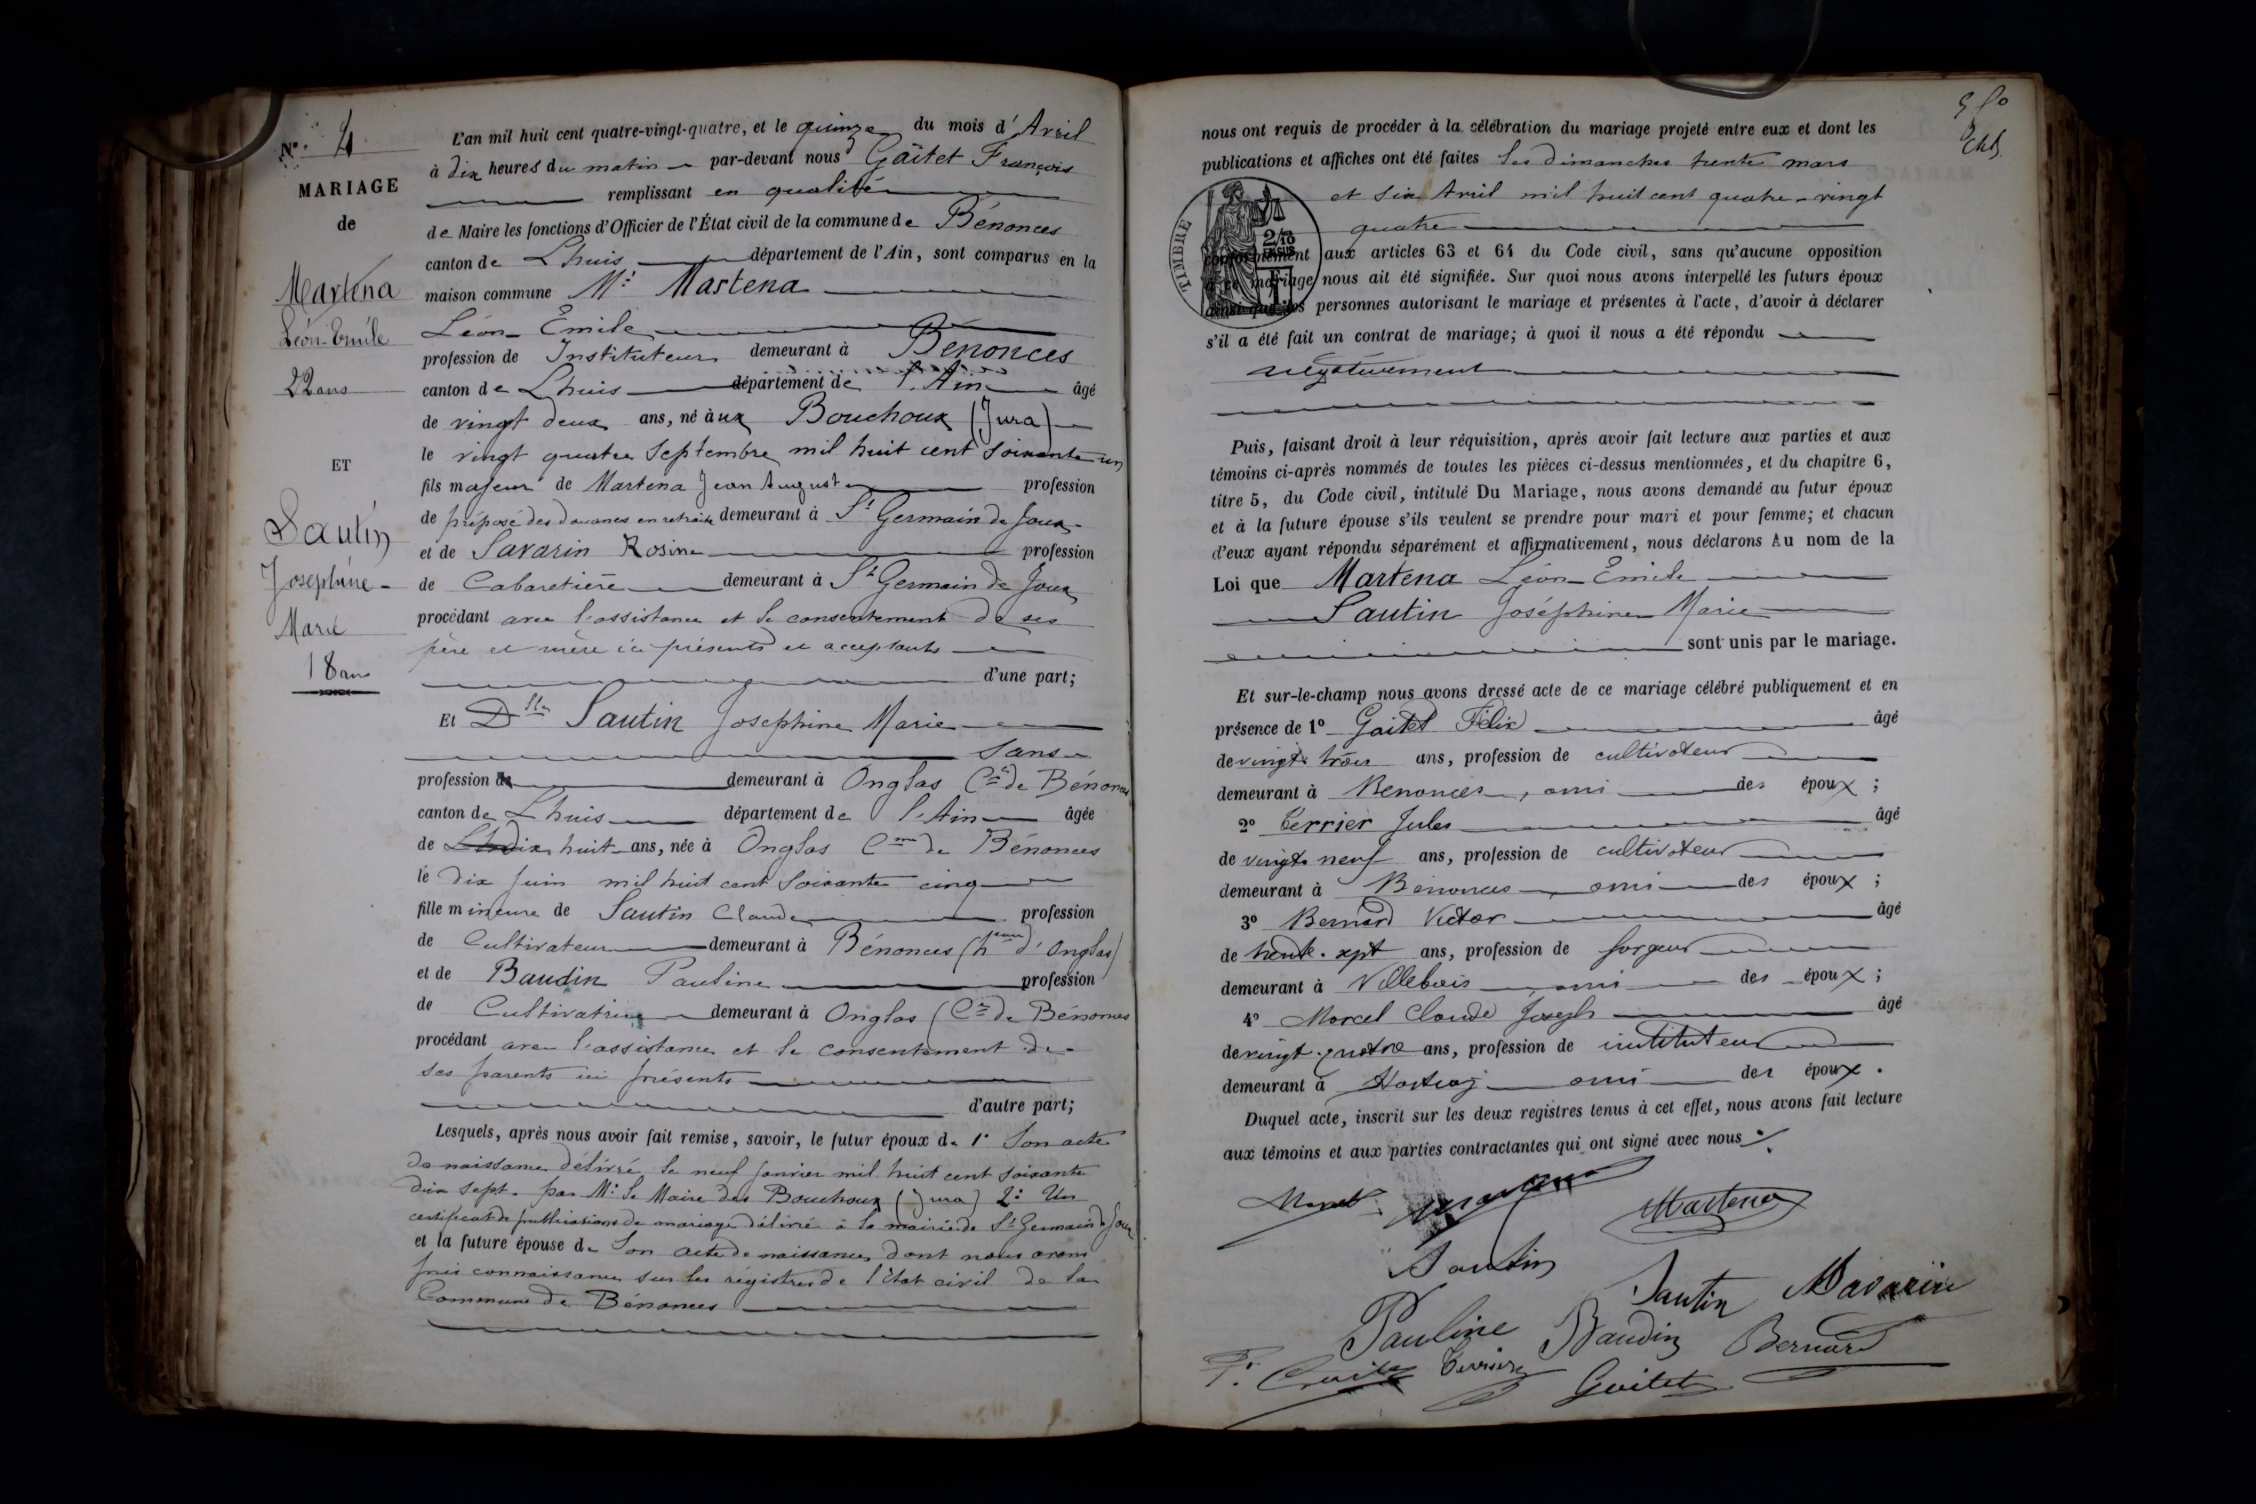 N° 4
MARIAGE
de
Martena
Léon-Emile
22 ans
ET
Sautin
Joséphine
Marie
18 ans
L'an mil huit cent quatre-vingt-quatre, et le quinze du mois d'Avril
à dix heures du matin par-devant nous Gaîtet François
remplissant en qualité
de Maire les fonctions d'Officier de l'État civil de la commune de Bénonces
canton de Lhuis département de l'Ain, sont comparus en la
maison commune Mr Martena
Léon-Emile
profession de Instituteur demeurant à Bénonces
canton de Lhuis département de l'Ain âgé
de vingt deux ans, né aux Bouchoux (Jura)
le vingt quatre Septembre mil huit cent soixante un
fils majeur de Martena Jean Auguste profession
de préposé des douanes en retraite demeurant à St Germain de Joux
et de Savarin Rosine profession
de Cabaretière demeurant à St Germain de Joux
procédant avec l'assistance et le consentement de ses
père et mère ici présents et acceptants
d'une part;
Et Dlle Sautin Joséphine Marie
Sans
profession demeurant à Onglas Cne de Bénonces
canton de Lhuis département de l'Ain âgée
de dix huit ans, née à Onglas Cne de Bénonces
le dix Juin mil huit cent soixante cinq
fille mineure de Sautin Claude profession
de Cultivateur demeurant à Bénonces (hameau d'Onglas)
et de Baudin Pauline profession
de Cultivatrice demeurant à Onglas (Cne de Bénonces
procédant avec l'assistance et le consentement de
ses parents ici présents
d'autre part;
Lesquels, après nous avoir fait remise, savoir, le futur époux de 1° Son acte
de naissance délivré le neuf Janvier mil huit cent soixante
dix sept par Mr le Maire des Bouchoux (Jura) 2° Un
certificat de publications de mariage délivré à la mairie de St Germain de Joux
et la future épouse de Son acte de naissance dont nous avons
pris connaissance sur les régistres de l'Etat civil de la
Commune de Bénonces
nous ont requis de procéder à la célébration du mariage projeté entre eux et dont les
publications et affiches ont été faites les dimanches trente mars
et six Avril mil huit cent quatre-vingt
quatre
TIMBRE
conformément aux articles 63 et 64 du Code civil, sans qu'aucune opposition
à ce mariage nous ait été signifiée. Sur quoi nous avons interpellé les futurs époux
ainsi que les personnes autorisant le mariage et présentes à l'acte, d'avoir à déclarer
s'il a été fait un contrat de mariage; à quoi il nous a été répondu
négativement
Puis, faisant droit à leur réquisition, après avoir fait lecture aux parties et aux
témoins ci-après nommés de toutes les pièces ci-dessus mentionnées, et du chapitre 6,
titre 5, du Code civil, intitulé Du Mariage, nous avons demandé au futur époux
et à la future épouse s'ils veulent se prendre pour mari et pour femme; et chacun
d'eux ayant répondu séparément et affirmativement, nous déclarons Au nom de la
Loi que Martena Léon-Emile
Sautin Joséphine Marie
sont unis par le mariage.
Et sur-le-champ nous avons dressé acte de ce mariage célébré publiquement et en
présence de 1° Gaitet Félix âgé
de vingt trois ans, profession de cultivateur
demeurant à Bénonces, ami des époux;
2° Terrier Jules âgé
de vingt neuf ans, profession de cultivateur
demeurant à Bénonces, ami des époux;
3° Bernard Victor âgé
de trente-sept ans, profession de forgeur
demeurant à Villebois, ami des époux;
4° Marcel Claude Joseph âgé
de vingt-quatre ans, profession de instituteur
demeurant à ami des époux.
Duquel acte, inscrit sur les deux registres tenus à cet effet, nous avons fait lecture
aux témoins et aux parties contractantes qui ont signé avec nous
Martena
Sautin
Sautin
Pauline Baudin Bernard
Gaitet